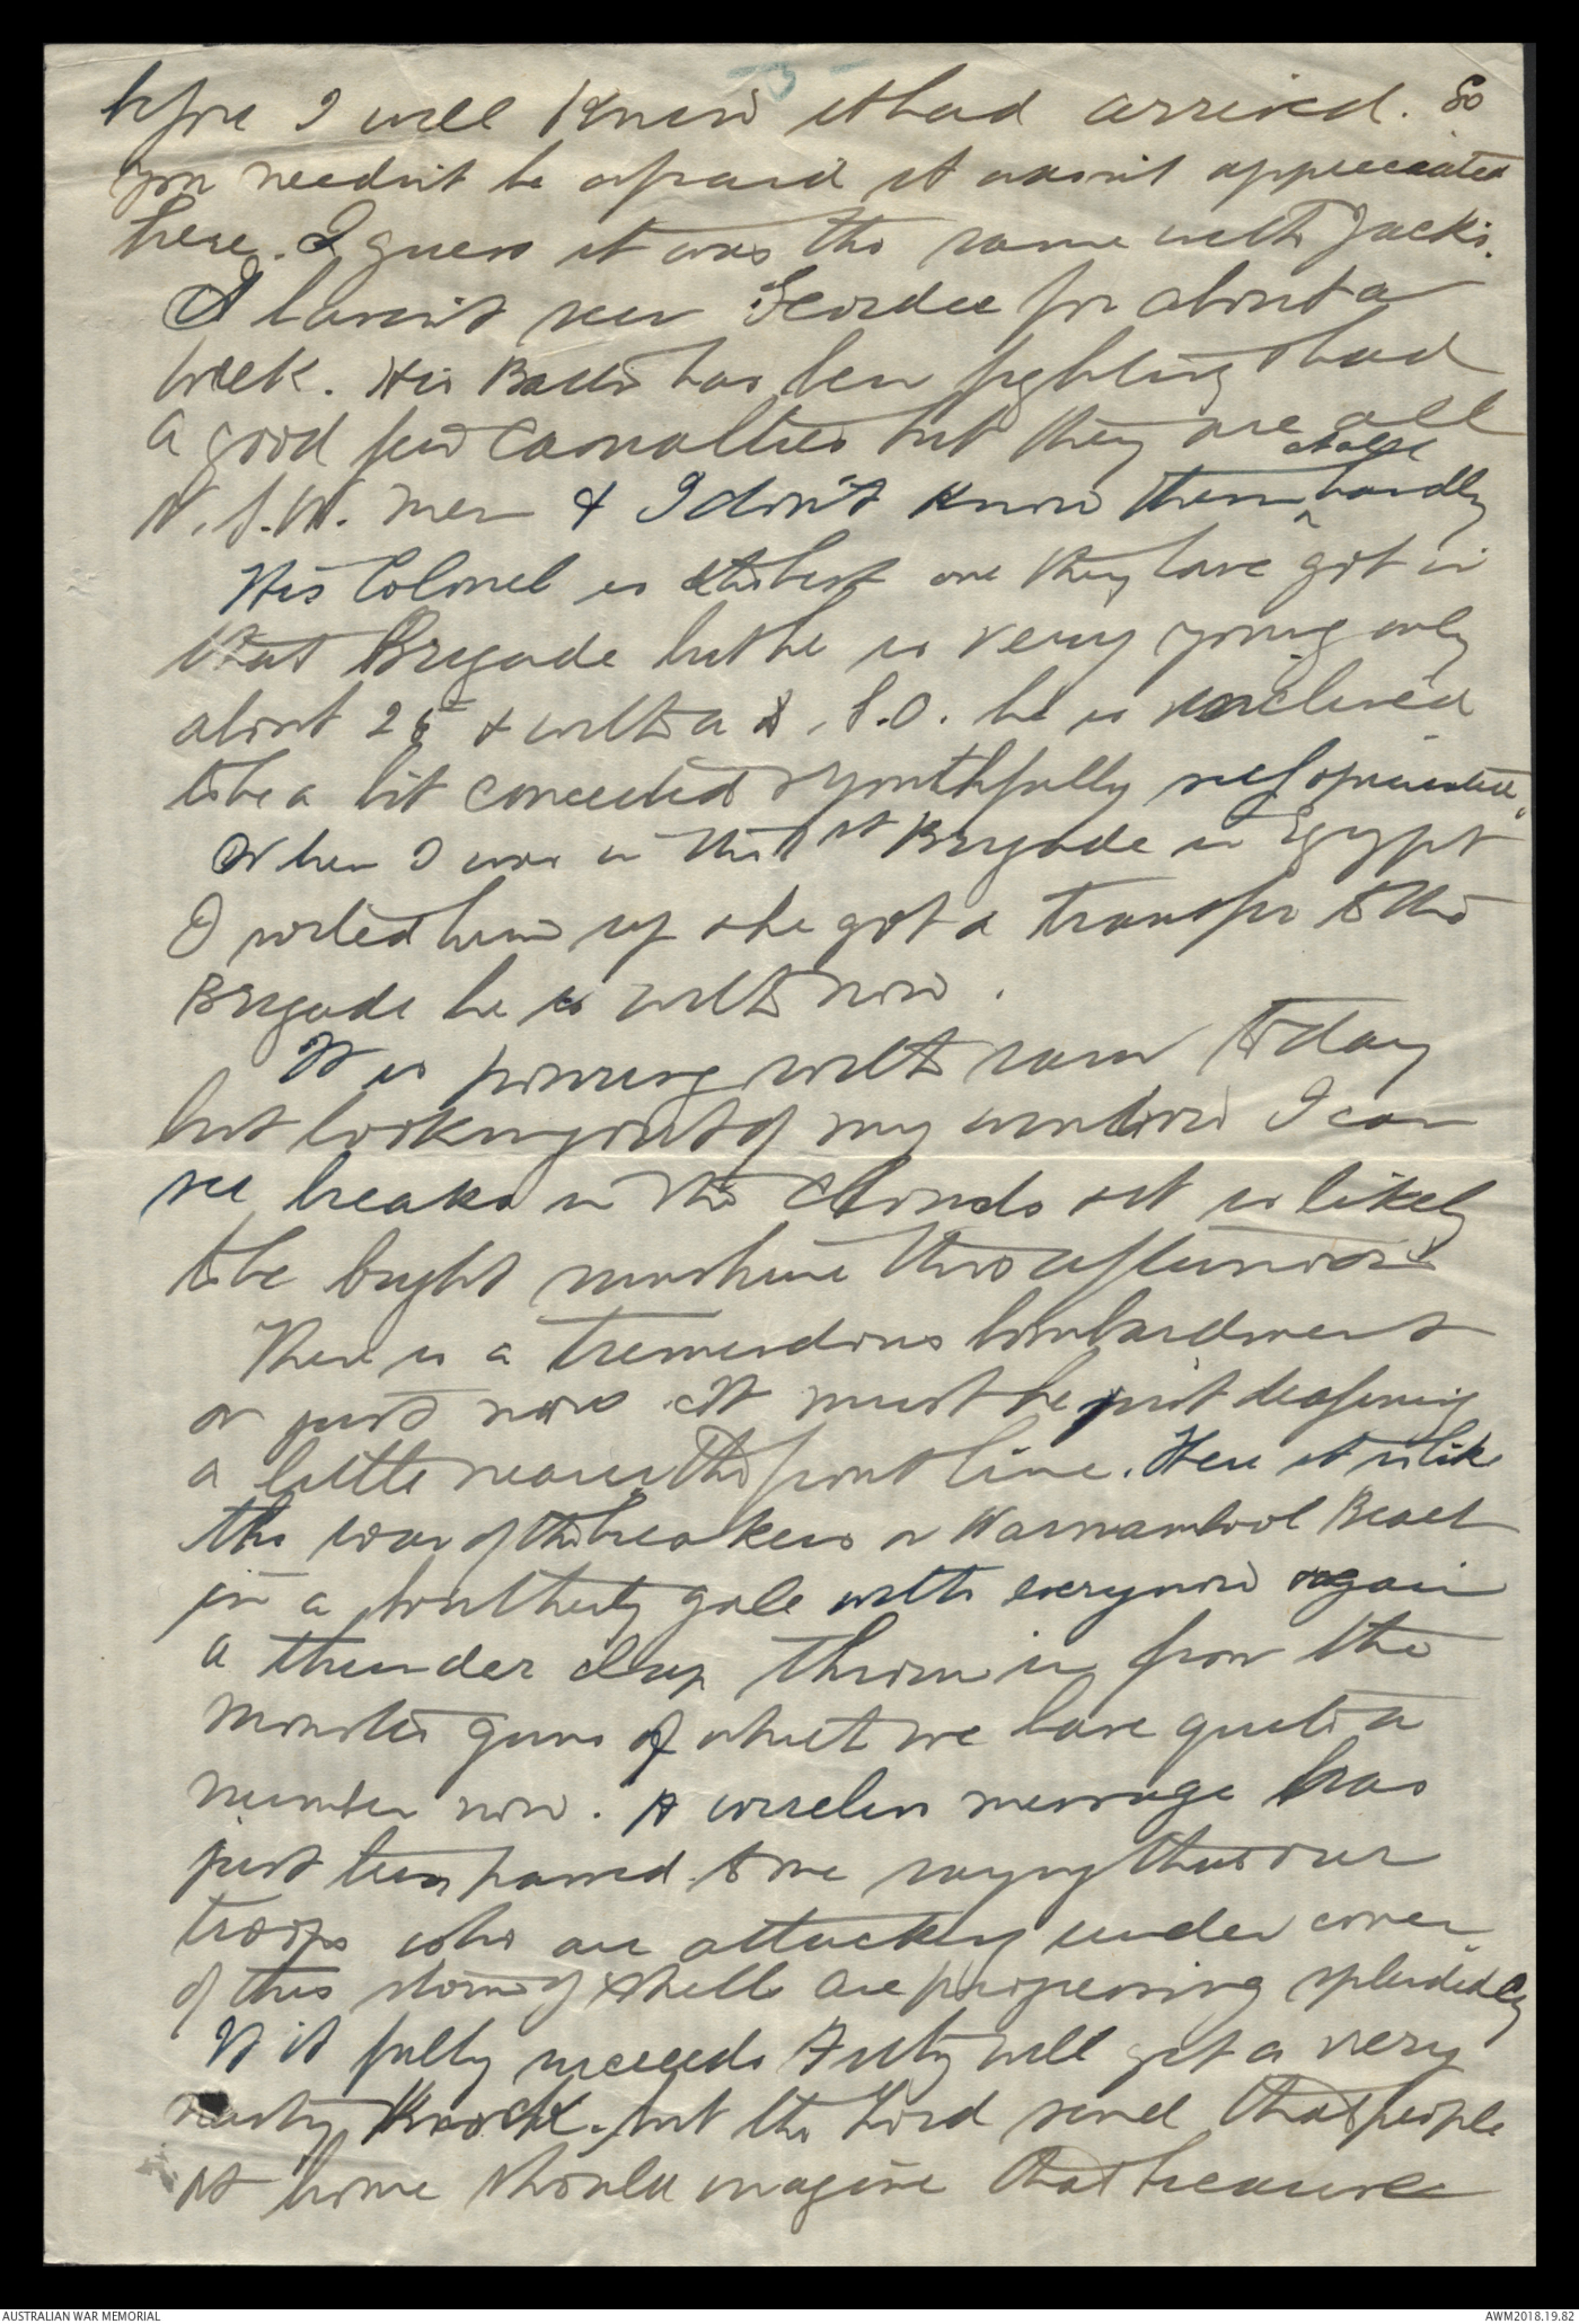 - 3 -
before I well knew it had arrived. So
you needn't be afraid it wasn't appreciated
here. I guess it was the same with Jack's.
I haven't seen Geordie for about a
week. His Battn has been fighting & had
a good few casualties but they are all
N.S.W. men & I don't know them at all hardly
His Colonel is the best one they have got in
that Brigade but he is very young only
about 25 & with a D.S.O. he is inclined
to be a bit conceited & youthfully self opinionated.
When I was in the 1st Brigade in Egypt
I sorted him up & he got a transfer to the
Brigade he is with now.
It is pouring with rain today
but looking out of my window I can
see breaks in the clouds & it is likely
to be bright sunshine this afternoon
There is a tremendous bombardment
on just now. It must be just deafening
a little nearer the front line. Here it is like
the roar of the breakers on Warrnambool Beach
in a southerly gale with every now & again
a thunder clap thrown in from the
monster guns of which we have quite a
number now. A wireless message has
just been passed to me saying that our
troops who are attacking under cover
of this storm of shell are progressing splendidly
If it fully succeeds Fritz will get a very
nasty knock, but the Lord send that people
at home should imagine that because
AUSTRALIAN WAR MEMORIAL
AWM2018.19.82